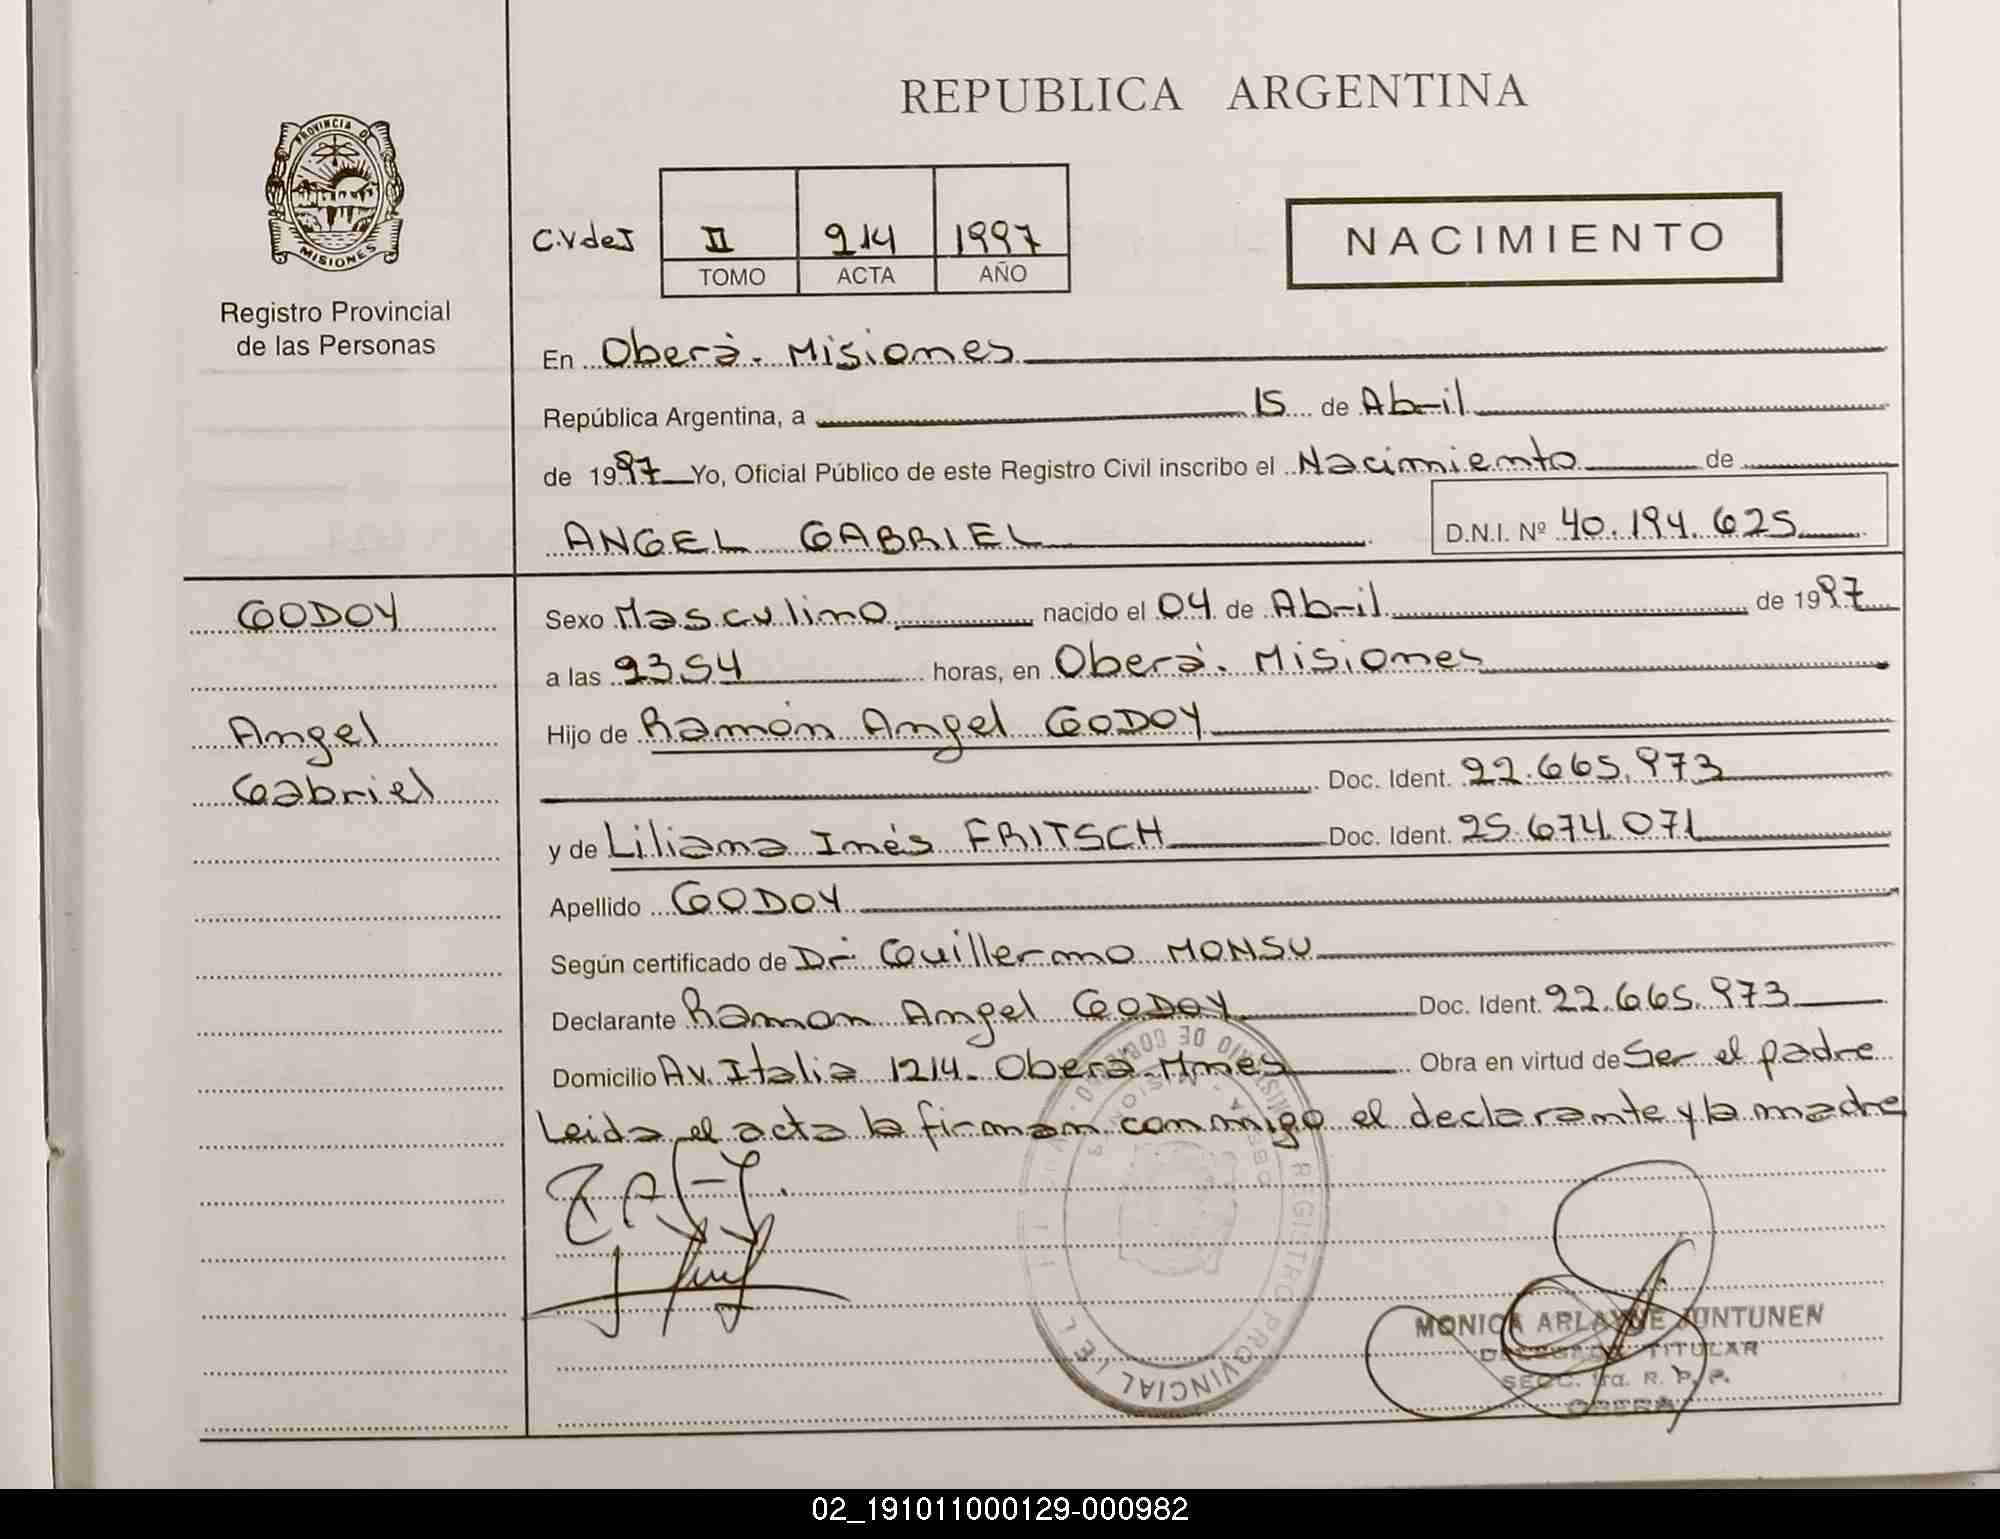 REPUBLICA ARGENTINA
PROVINCIA DE
MISIONES
Registro Provincial
de las Personas
C.V de I
II 214 1997
TOMO ACTA AÑO
NACIMIENTO
En Oberá. Misiones
República Argentina, a 15 de Abril
de 1997 Yo, Oficial Público de este Registro Civil inscribo el Nacimiento de
ANGEL GABRIEL D.N.I. Nº 40.194.625
GODOY
Angel
Gabriel
Sexo Masculino nacido el 04 de Abril de 1997
a las 2354 horas, en Oberá. Misiones
Hijo de Ramón Angel GODOY
Doc. Ident. 22.665.973
y de Liliana Inés FRITSCH Doc. Ident. 25.674.071
Apellido GODOY
Según certificado de Dr. Guillermo MONSU
Declarante Ramon Angel GODOY Doc. Ident. 22.665.973
Domicilio Av. Italia 1214. Oberá-Mnes Obra en virtud de Ser el padre
Leida el acta la firman conmigo el declarante y la madre
REGISTRO PROVINCIAL
MONICA ARLAYNE JUNTUNEN
DELEGADA TITULAR
SECC. R. P. P.
OBERA
02_191011000129-000982